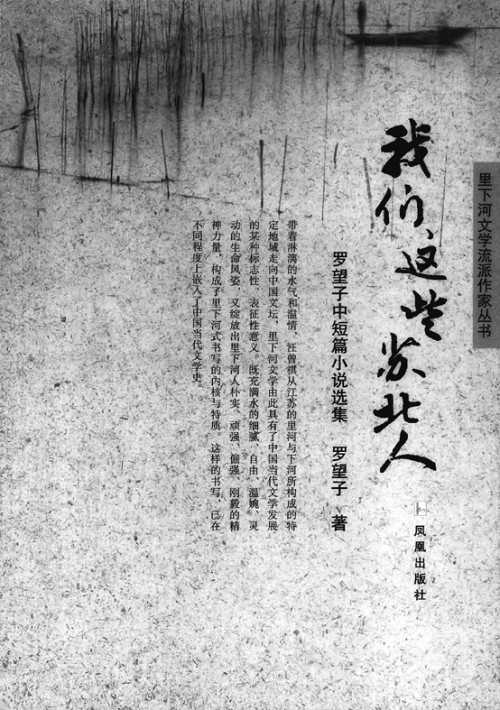 里下河文学流派作家丛书
我们，这些苏北人
罗望子中短篇小说选集 罗望子 著
凤凰出版社
带着淋漓的水气和温情，汪曾祺从江苏的里河与下河所构成的特
定地域走向中国文坛，里下河文学由此具有了中国当代文学发展
的某种标志性、表征性意义。既充满水的细腻、自由、温婉、灵
动的生命风姿，又绽放出里下河人朴实、顽强、倔强、刚毅的精
神力量，构成了里下河式书写的内核与特质。这样的书写，已在
不同程度上嵌入了中国当代文学史。